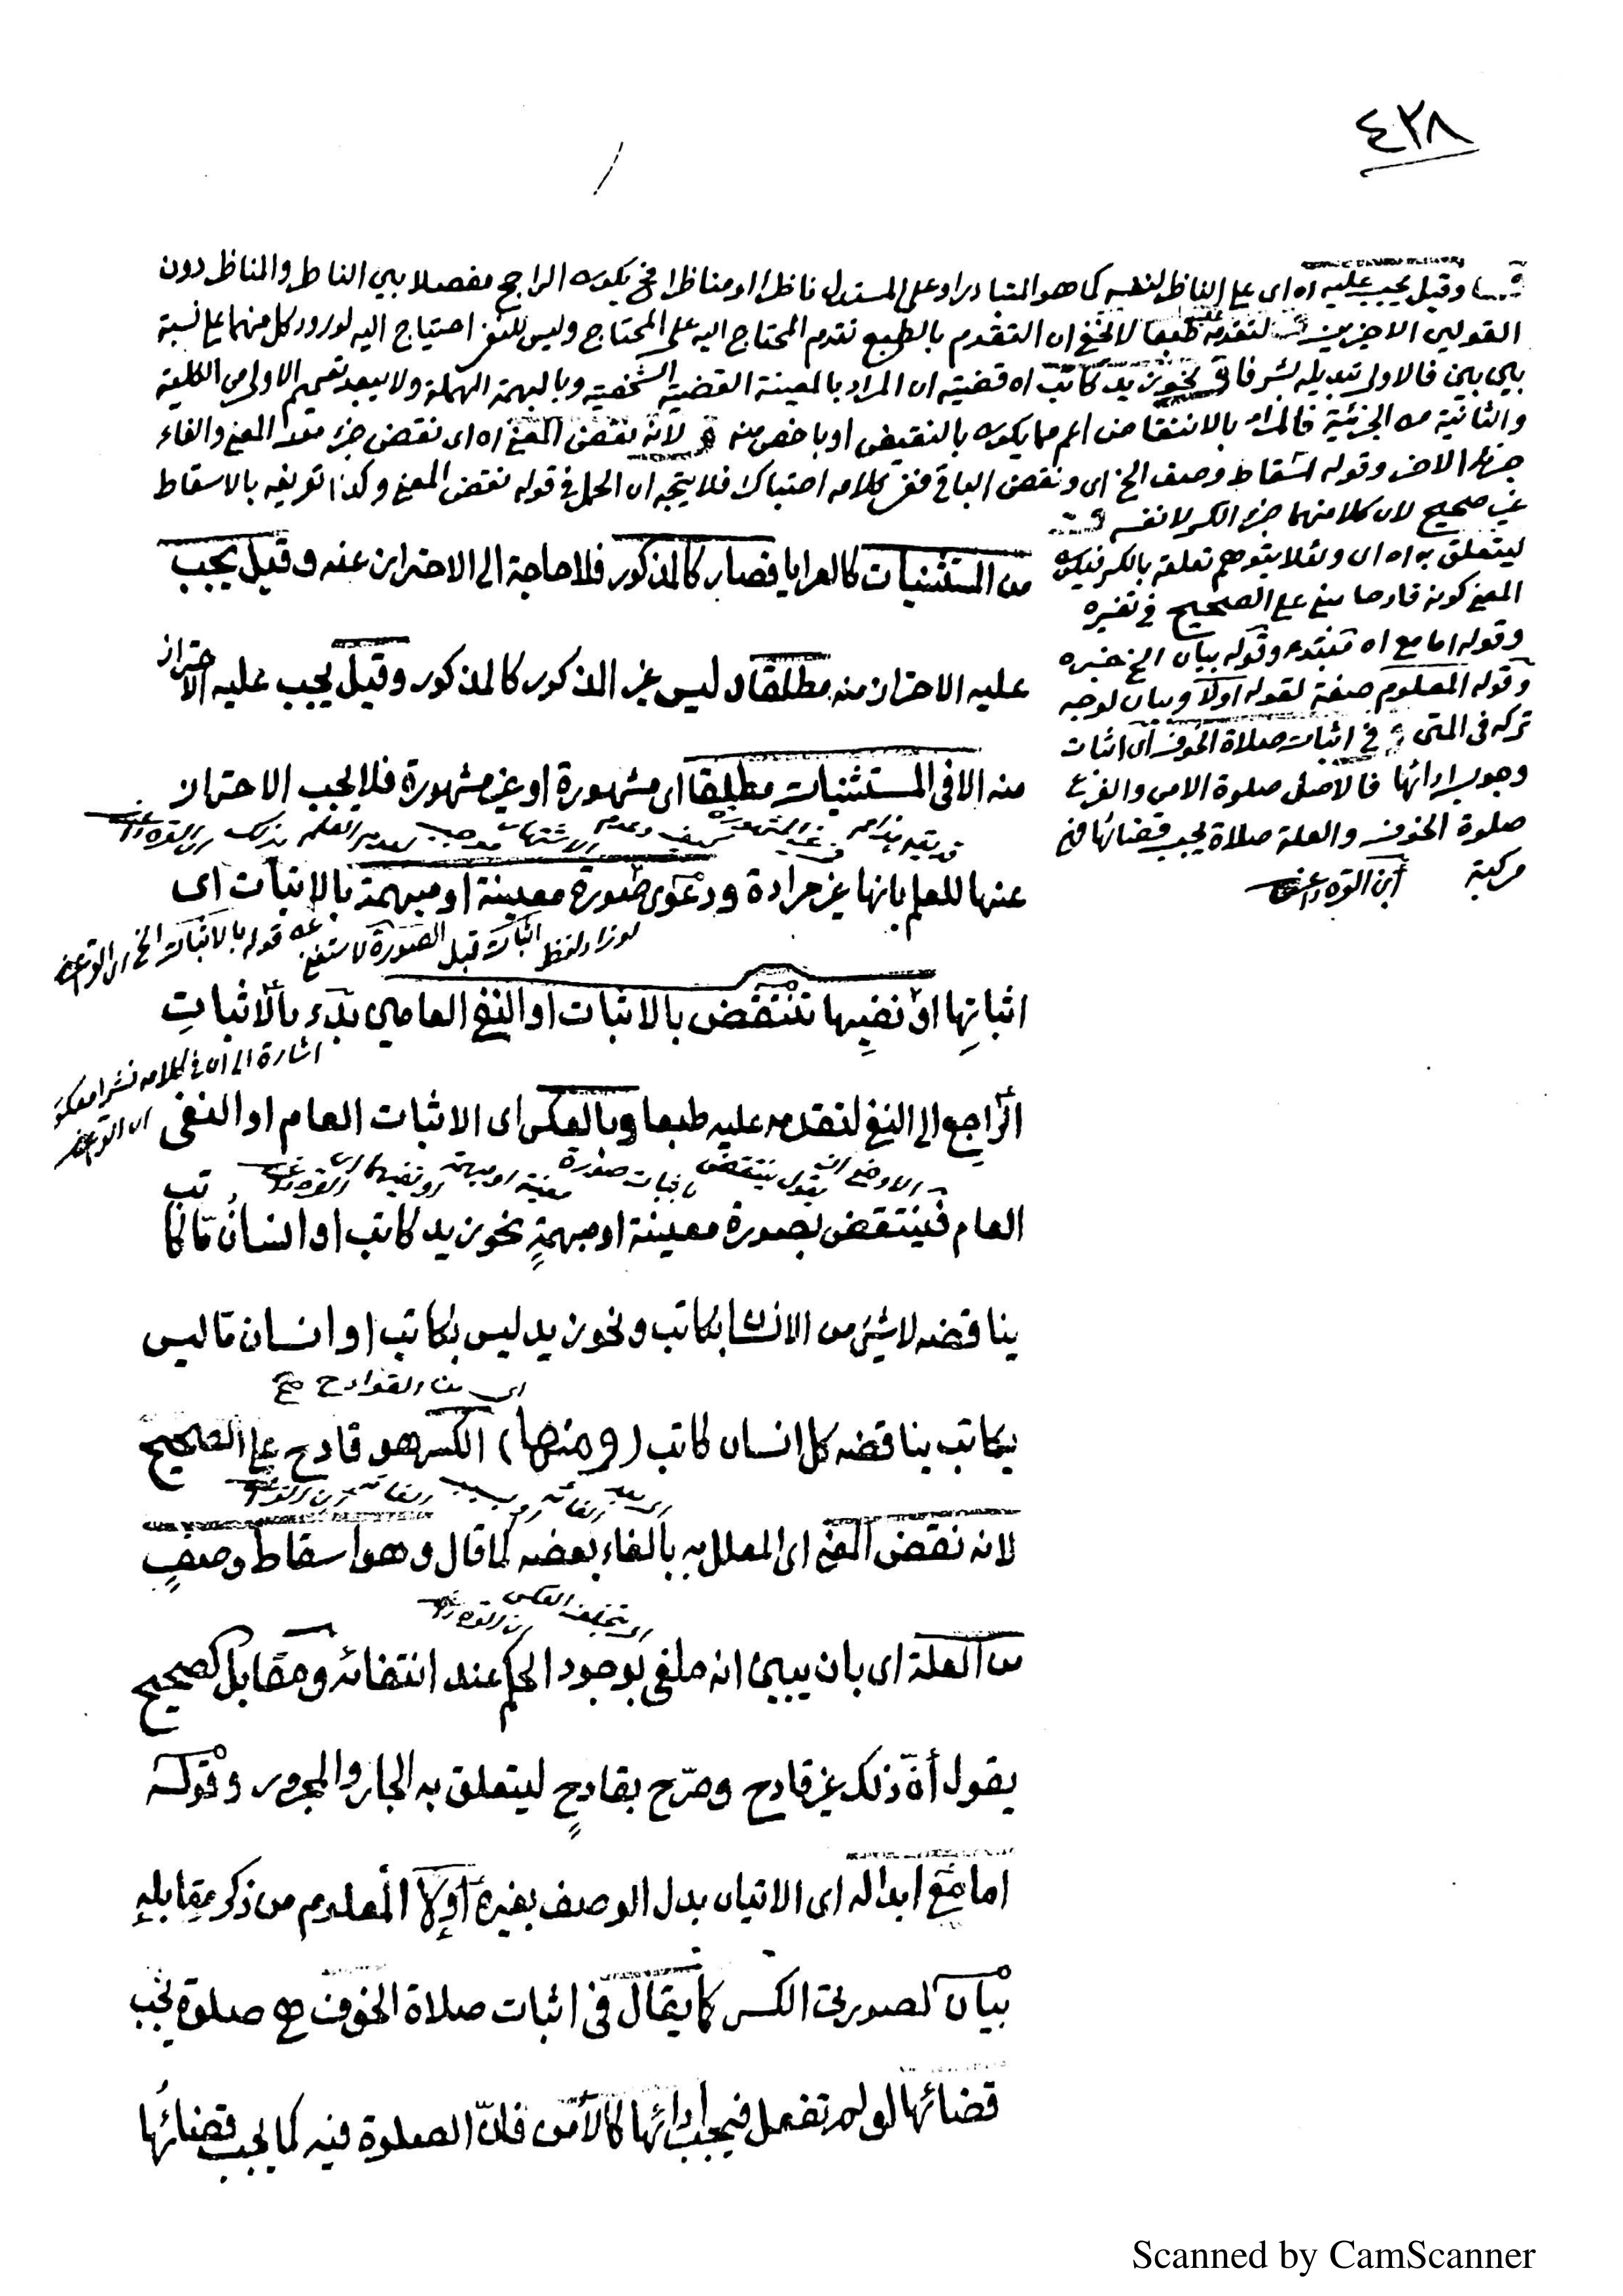 ٤٣٨
وقيل يجب عليه اه اى على الناظر لنفسه كما هو المتبادر او على المستدل ناظرا او مناظرا فح يكون الراجح مفصلا بين الناظر والمناظر دون
القولين الاخيرين لتقدمه طبعا لا يخفى ان التقدم بالطبع تقدم المحتاج اليه على المحتاج وليس للنفى احتياج اليه لورود كل منهما على نسبة
بين بين فالاولى تبديله بشرفا نحو زيد كاتب اه قضيته ان المراد بالمعينة القضية الشخصية وبالمبهمة المهملة ولا يبعد تعميم الاولى من الكلية
والثانية من الجزئية فالمراد بالانتقاض اعم مما يكون بالنقيض او باخص منه لانه نقض المعنى اه اى نقض جزء المعنى والغاء
جزئه الاخر وقوله اسقاط وصف الخ اى ونقض الباقى ففى كلامه احتباك فلا يتجه ان الحمل فى قوله نقض المعنى وكذا تعريفه بالاسقاط
غير صحيح لان كلا منهما جزء الكسر لا نفسه
ليتعلق به اه اى ولئلا يتوهم تعلقه بالكسر فيكون
المعنى كونه قادحا مبنى على الصحيح فى تفسيره
وقوله اما مع اه مبتدء وقوله بيان الخ خبره
وقوله المعلوم صفة لقوله اولا وبيان لوجه
تركه فى المتن فى اثبات صلاة الخوف اى اثبات
وجوب ادائها فالاصل صلوة الامن والفرع
صلوة الخوف والعلة صلاة يجب قضائها فهى
مركبة ابن القره داغى
من المستثنيات كالعرايا فصار كالمذكور فلا حاجة الى الاحتراز عنه وقيل يجب
عليه الاحتراز منه مطلقا ليس غير المذكور كالمذكور وقيل يجب عليه الاحتراز
منه الا فى المستثنيات مطلقا اى مشهورة او غير مشهورة فلا يجب الاحتراز
عنها للعلم بانها غير مرادة ودعوى صورة معينة او مبهمة بالاثبات اى
لو زاد لفظ اثبات قبل الصورة لاستغنى عن قوله بالاثبات الخ
اثباتها او نفيها تنتقض بالاثبات او النفى العامين بدء بالاثبات
اشارة الى ان فى كلامه نشرا معكو
الراجع الى النفى لتقدمه عليه طبعا وبالعكس اى الاثبات العام او النفى
العام فينتقض بصورة معينة او مبهمة نحو زيد كاتب او انسان ما كاتب
يناقضه لا شىء من الانسان بكاتب ونحو زيد ليس بكاتب او انسان ما ليس
اى من القوادح
بكاتب يناقضه كل انسان كاتب (ومنها) الكسر هو قادح على الصحيح
لانه نقض المعنى اى المعلل به بالغاء بعضه كما قال وهو اسقاط وصف
من العلة اى بان يبين انه ملغى بوجود الحكم عند انتفائه ومقابل الصحيح
يقول أنّ ذلك غير قادح وصرّح بقادح ليتعلق به الجار والمجرور وقوله
اما مع ابداله اى الاتيان بدل الوصف بغيره اولا المعلوم من ذكر مقابله
بيان لصورتى الكسر كما يقال فى اثبات صلاة الخوف هى صلوة يجب
قضائها لو لم تفعل فيجب ادائها كالأمن فانّ الصلوة فيه كما يجب قضائها
Scanned by CamScanner